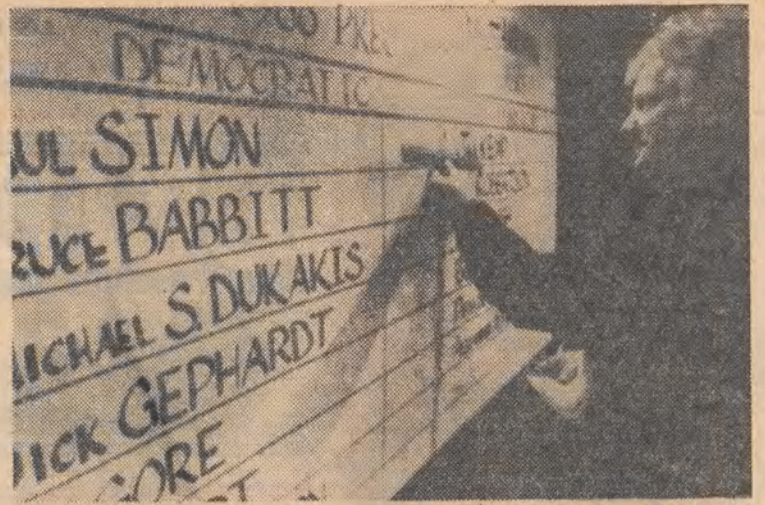 DEMOCRATIC
UL SIMON
RUCE BABBITT
MICHAEL S. DUKAKIS
DICK GEPHARDT
GORE